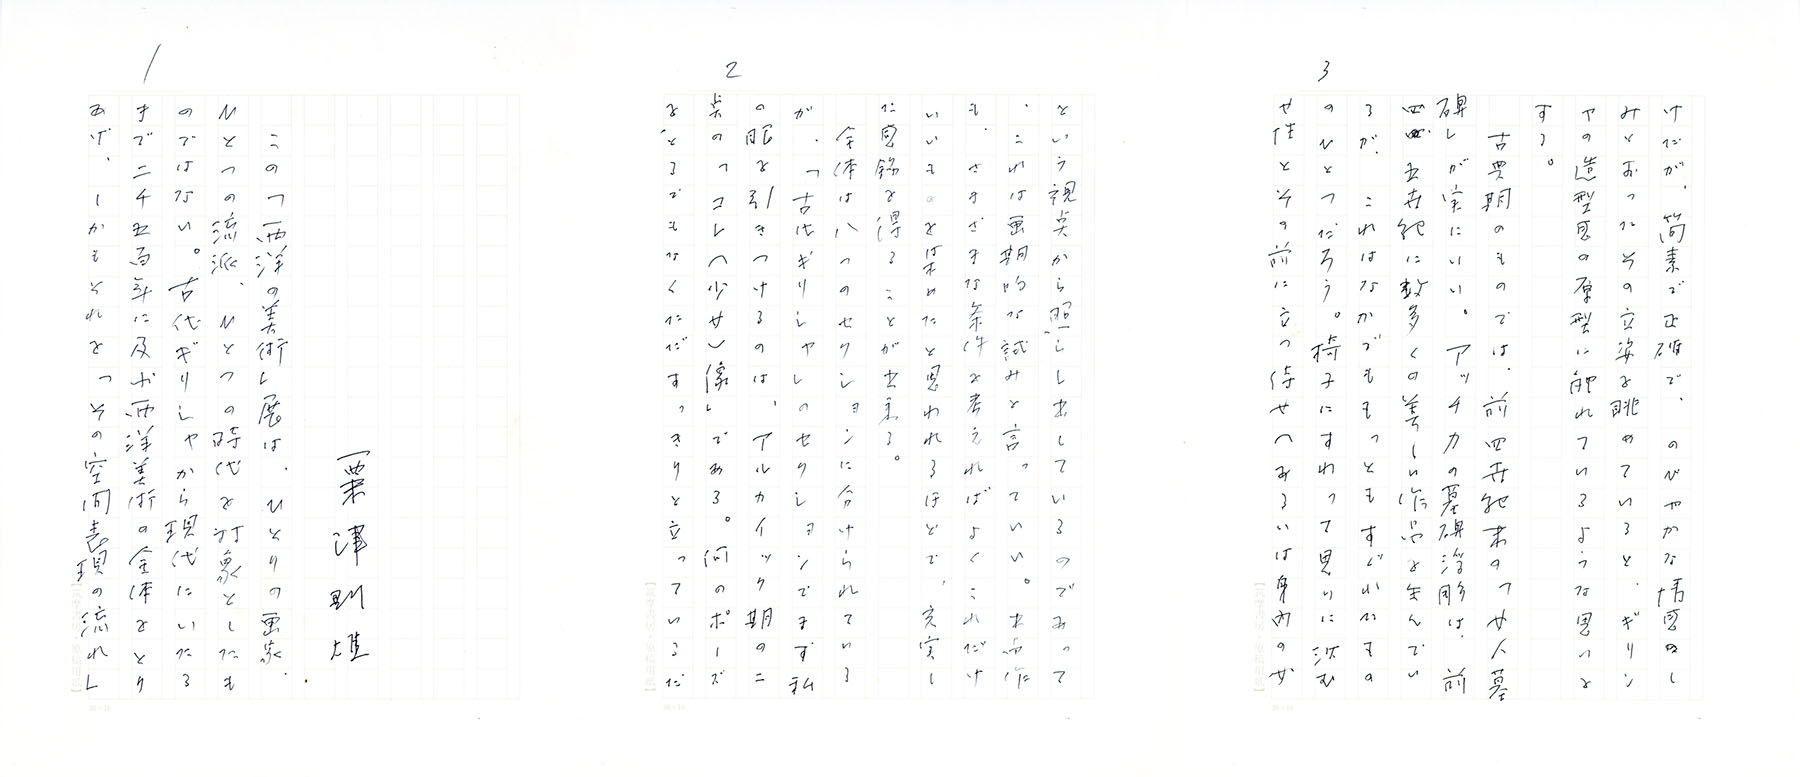 1
粟津則雄
この「西洋の美術」展は、ひとりの画家、
ひとつの流派、ひとつの時代を対象としたも
のではない。古代ギリシャから現代にいたる
まで二千五百年に及ぶ西洋美術の全体をとり
あげ、しかもそれを「その空間表現の流れ」
【筑摩書房・原稿用紙】
20×10
2
という視点から照し出しているのであって
、これは画期的な試みと言っていい。出品作
も、さまざまな条件を考えればよくこれだけ
いいものを集めたと思われるほどで、充実し
た見銘を得ることが出来る。
全体は八つのセクションに分けられている
が、「古代ギリシャ」のセクションでまず私
の眼を引きつけるのは、アルカイック期の二
点の「コレ(少女)像」である。何のポーズ
をとるでもなくただすっきりと立っているだ
【筑摩書房・原稿用紙】
20×10
3
けだが、簡素で正確で、のびやかな情思の
しみとおったその立姿を眺めていると、ギリシ
ャの造型思の原型に触れているような思いを
する。
古典期のものでは、前四世紀末の「女人墓
碑」が実にいい。アッチカの墓碑浮彫は、前
四、五世紀に数多くの美しい作品を生んでい
るが、これはなかでももっともすぐれたもの
のひとつだろう。椅子にすわって思いに沈む
女性とその前に立つ侍女(あるいは身内の女
【筑摩書房・原稿用紙】
20×10